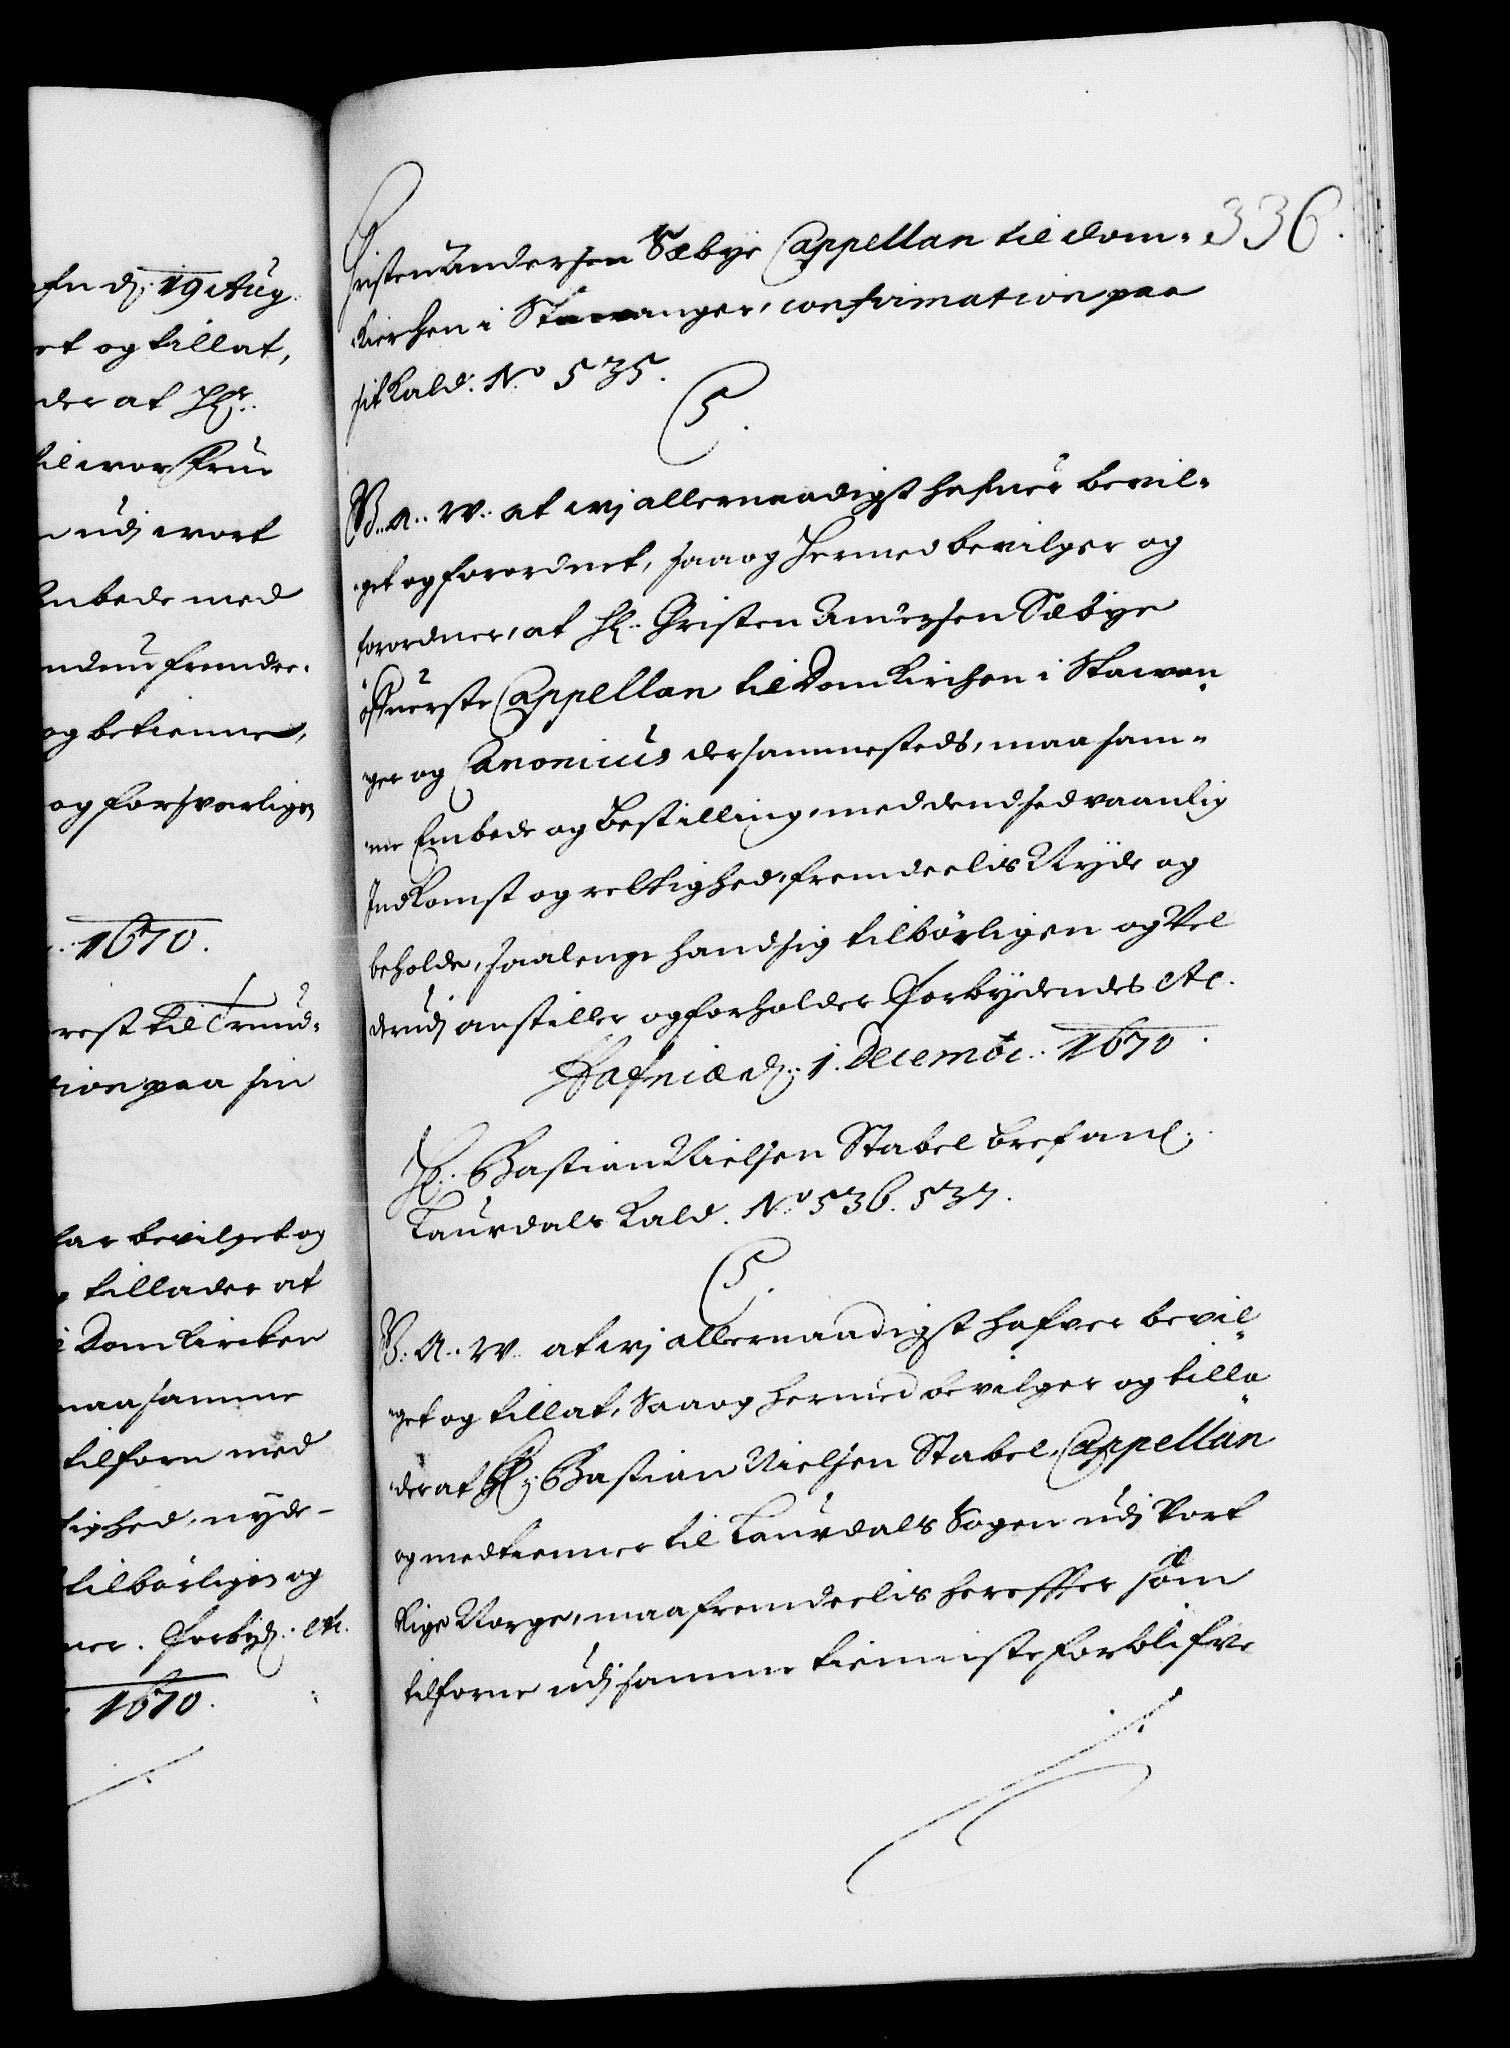 fn dj. 19 Aug.
et og tillat,
der at Hr.
til wor Frue
udj wort
Embede med
endnu fremdee-
og betienne,
og forsvarligen
1670.
rest til Trund-
tion paa sin
far bevilget og
tillader at
i Dom kircken
maa samme
tilforn med
tighed, nyde
tilbørligen og
ner. Forbyd. etc.
1670.
336.
Christen Andersen Sæbye Cappellan til dom-
kirchen i Stawanger, confirmation paa
sit Kald. No 535.
C5.
G. A. W. at wj allernaadigst hafuer bevil-
get og forordnet, saa og hermed bevilger og
forordner, at Hr. Christen Andersen Sæbye
øfuerste Cappellan til Domkirchen i Stawan
ger og Canonicus dersammesteds, maa sam-
me Embede og bestilling, med dend sedvaanlig
Indkomst og rettighed, fremdeelis Nyde og
beholde, saalenge hand sig tilbørligen og Vel
derudj anstiller og forholder Forbydendes etc.
Hafniæ dj. 1. Decembr. 1670.
Hr. Bastian Nielsen Stabel bref anl.
Laurdals Kald. No 536. 537.
C5.
G. A. W. at wj allernaadigst hafver bevil
get og tillat, Saa og hermed bevilger og tilla
der at Hr. Bastian Nielsen Stabel, Cappellan
og medtienner til Laurdals Sogen udj Vort
Rige Norge, maa fremdeelis hereffter som
tilforne udj samme tienniste forblifve